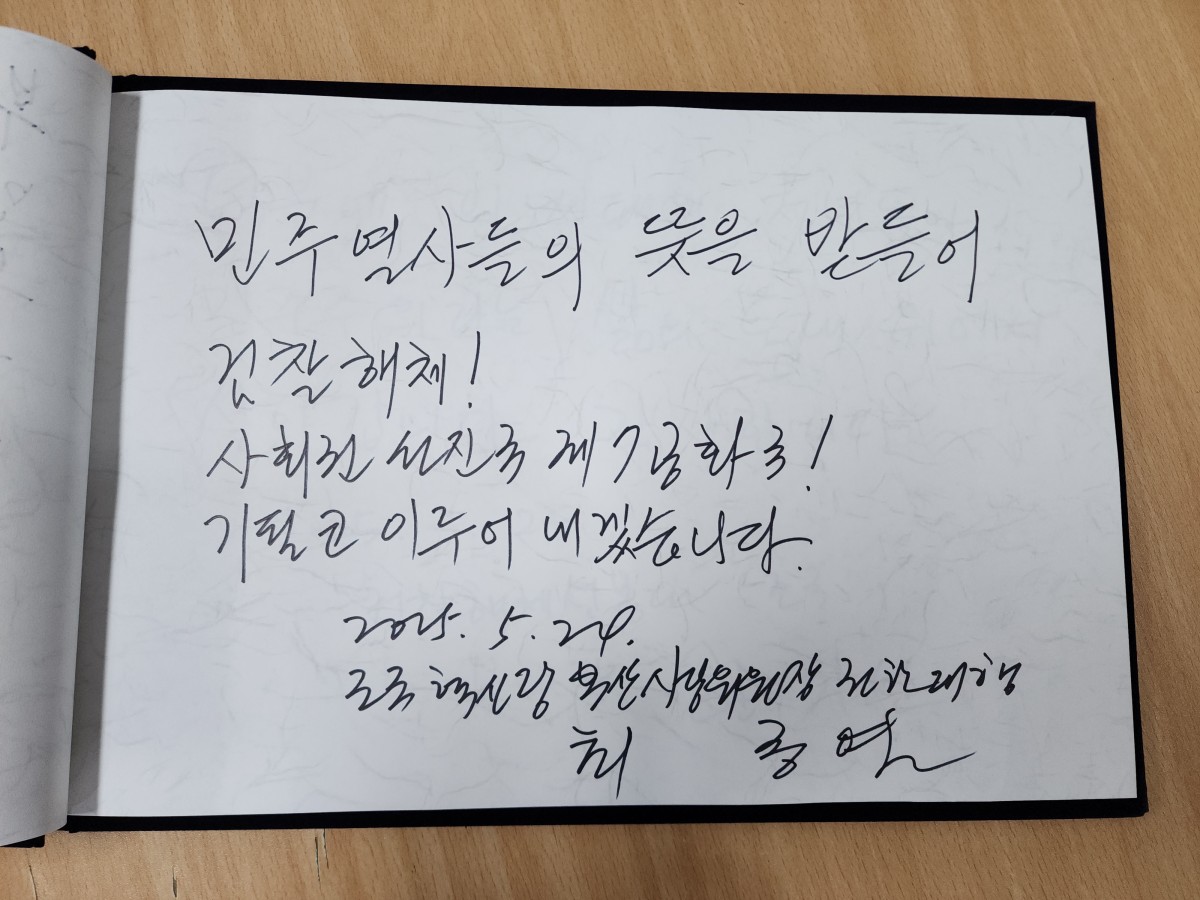 민주열사들의 뜻을 받들어
검찰해체!
사회권 선진국 제7공화국!
기필코 이루어 내겠습니다.
2025. 5. 24.
조국혁신당 부산시당위원장 권한대행
최 종열